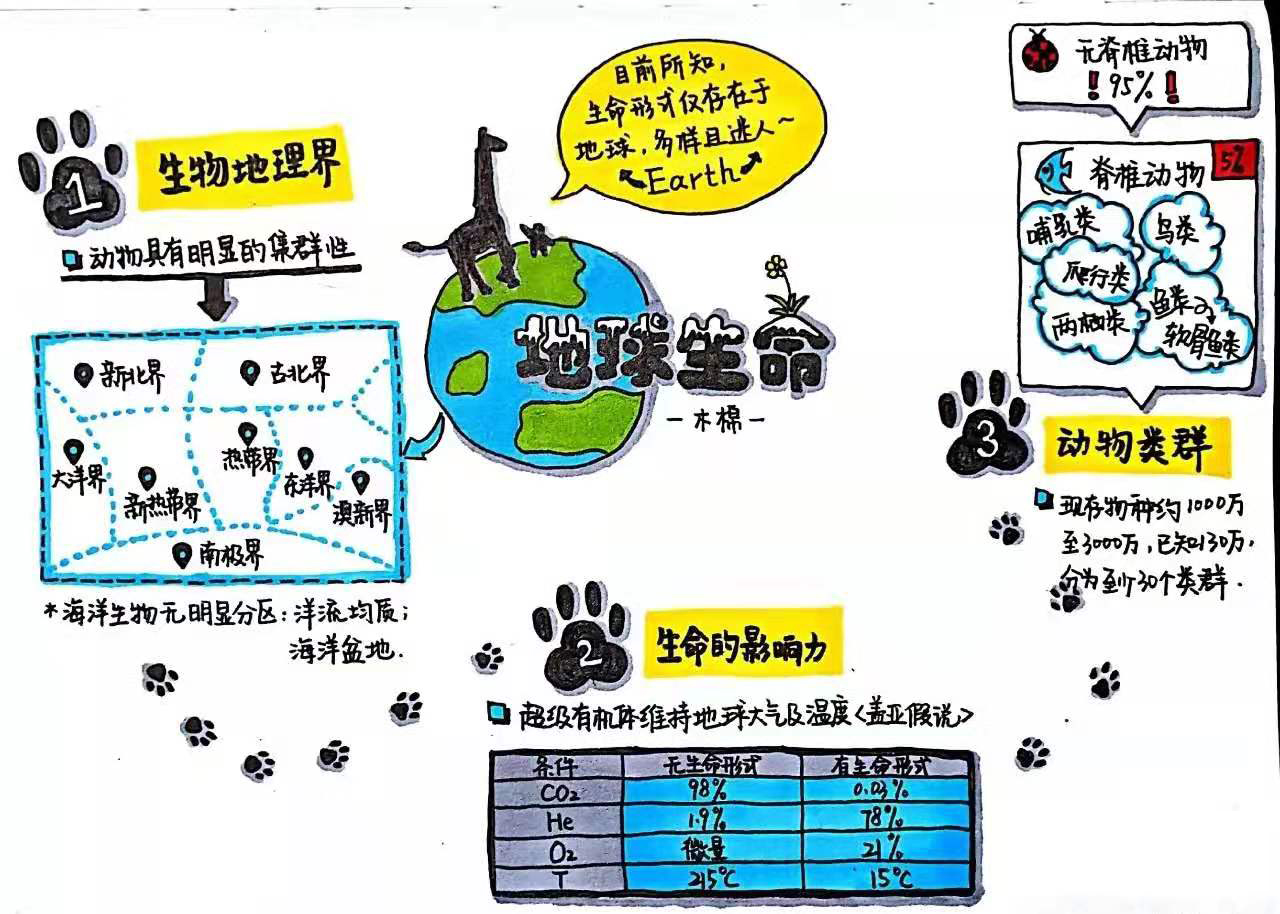 目前所知,
生命形式仅存在于
地球,多样且迷人~
Earth
地球生命
-木棉-
1
生物地理界
动物具有明显的集群性
新北界
古北界
大洋界
新热带界
热带界
东洋界
澳新界
南极界
*海洋生物无明显分区:洋流均质;
海洋盆地.
2
生命的影响力
超级有机体维持地球大气及温度<盖亚假说>
条件 无生命形式 有生命形式
CO2 98% 0.03%
He 1.9% 78%
O2 微量 21%
T 215℃ 15℃
无脊椎动物
!95%!
脊椎动物 5%
哺乳类
鸟类
爬行类
两栖类
鱼类
软骨鱼类
3
动物类群
现存物种约1000万
至3000万,已知130万,
分为至少30个类群.